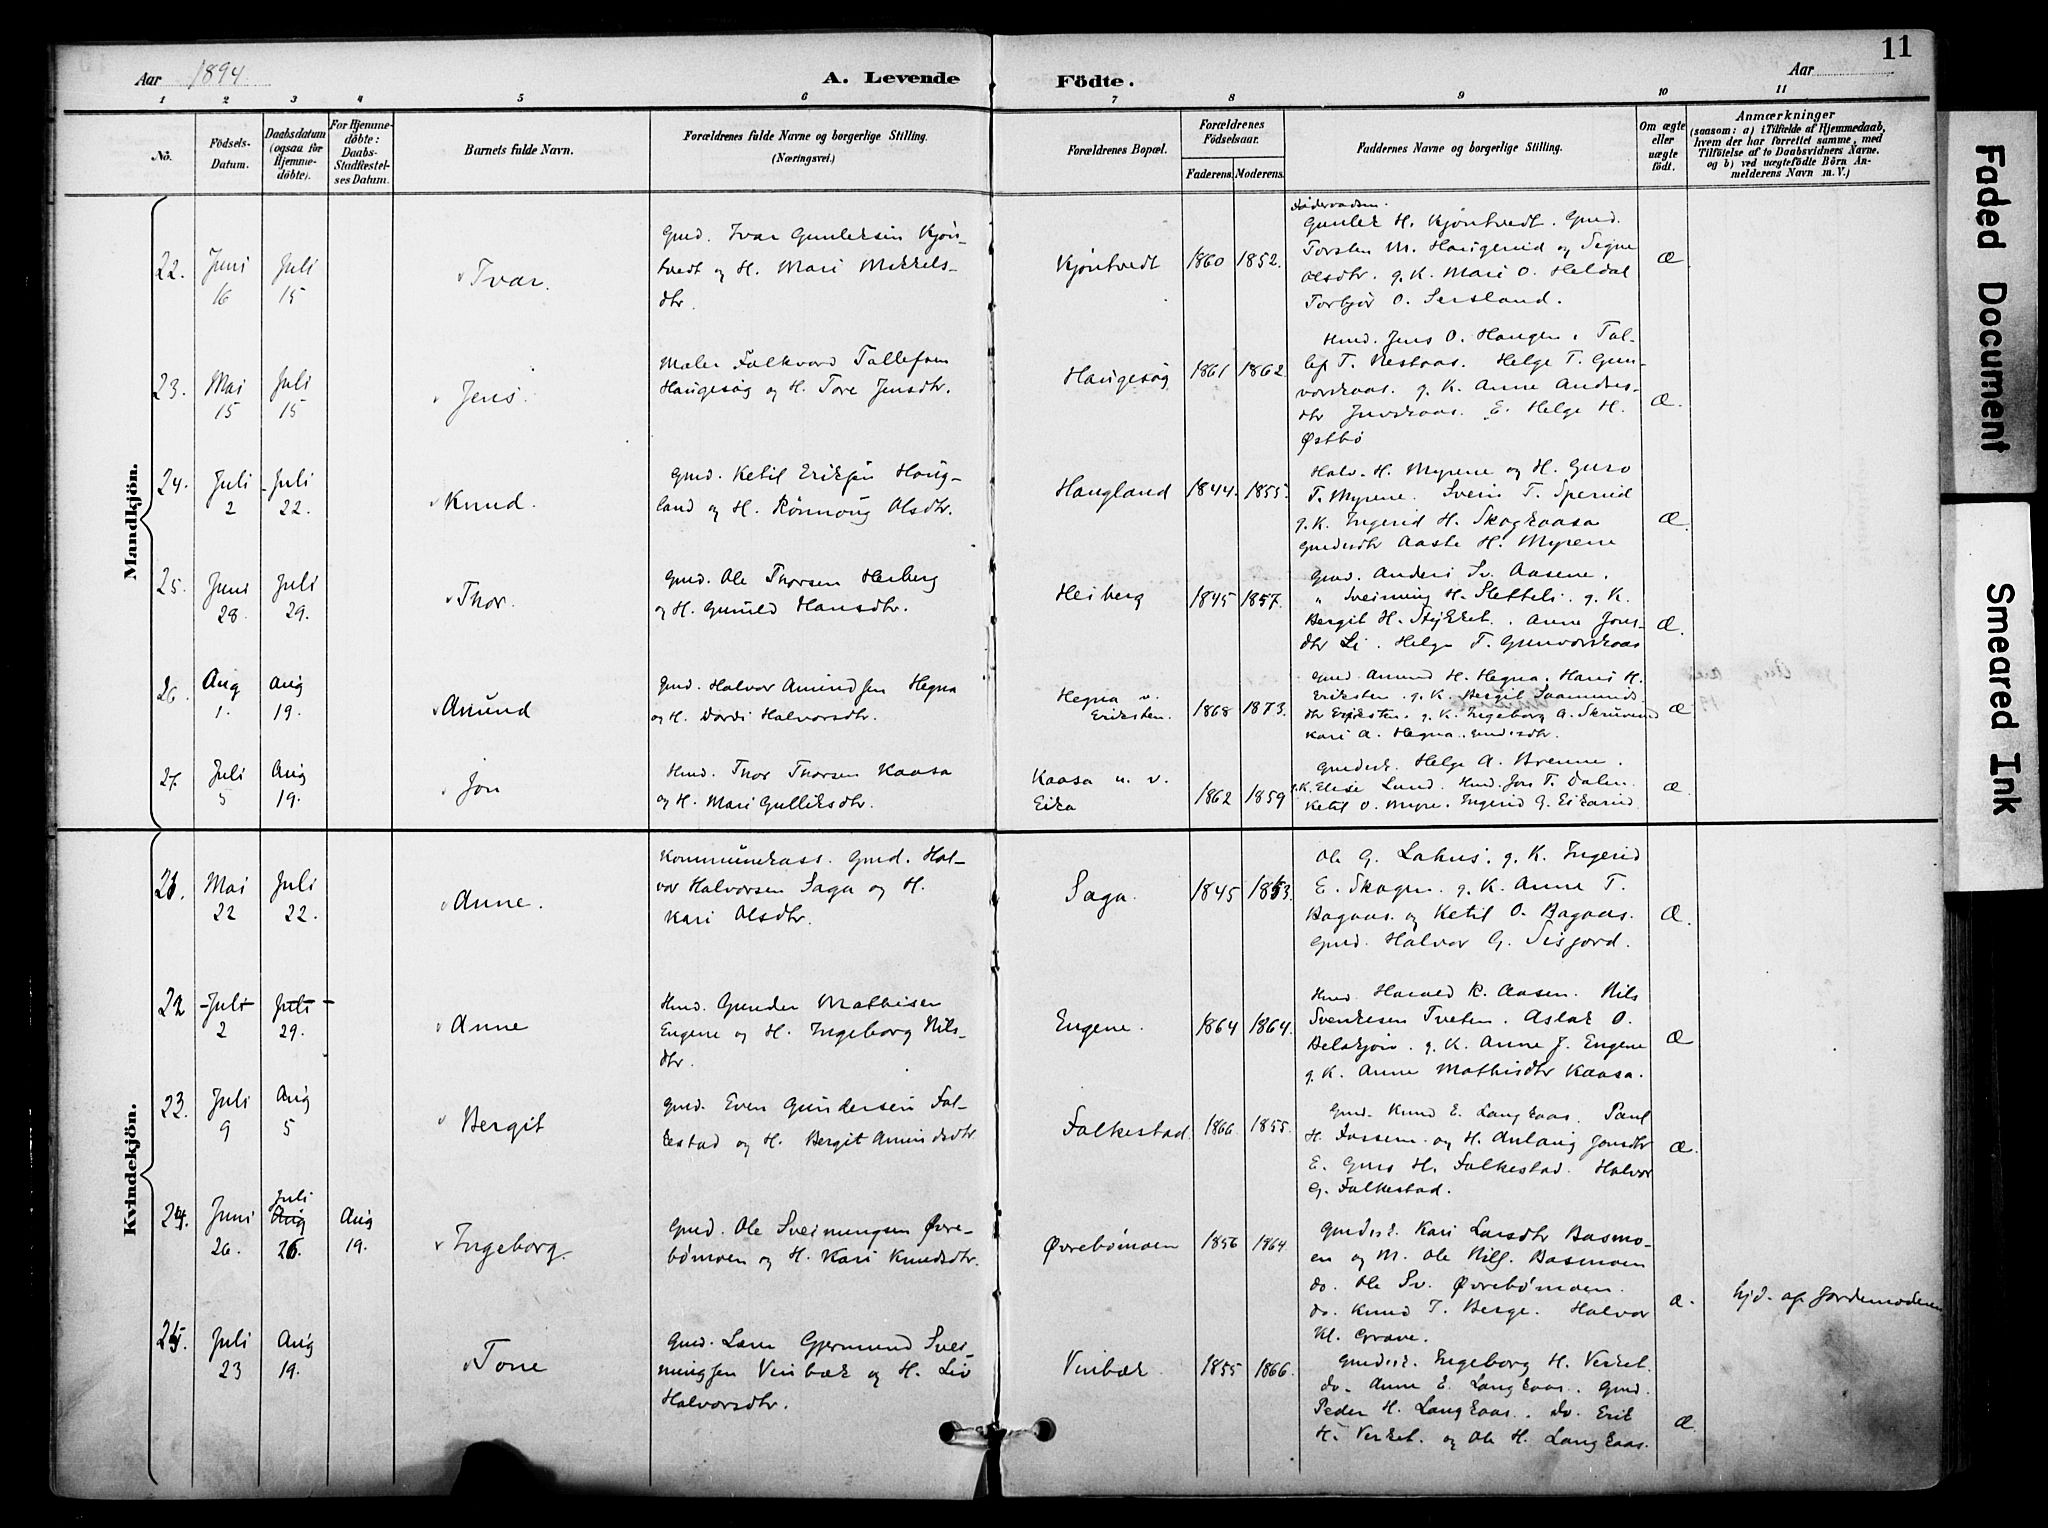 11
Aar 1894.
A. Levende Födte.
Aar
1 2 3 4 5 6 7 8 9 10 11
No.
Födsels-Datum.
Daabsdatum (ogsaa for Hjemme-döbte).
For Hjemme-döbte: Daabs-Stadfæstel-ses Datum.
Barnets fulde Navn.
Forældrenes fulde Navne og borgerlige Stilling.
(Næringsvei.)
Forældrenes Bopæl.
Forældrenes Födselsaar.
Faderens. Moderens.
Faddernes Navne og borgerlige Stilling.
Om ægte eller uægte födt.
Anmærkninger
(saasom: a) i Tilfælde af Hjemmedaab,
hvem der har forrettet samme, med
Tilföielse af to Daabsvidners Navne.
og b) ved uægtefödte Börn An-
melderens Navn m. V.)
Mandkjön.
22. Juni 16 Juli 15 Ivar.
Gmd. Ivar Gunlersen Kjøn-
tvedt og H. Mari Mikkels-
dtr.
Kjøntvedt 1860 1852.
Gunler H. Kjøntvedt. Gmd.
Torsten M. Haugerud og Signe
Olsdtr. g. K. Mari O. Heldal
Torbjør O. Sersland.
Æ
23. Mai 15 Juli 15 Jens.
Maler Folkvard Tollefsen
Haugesøg og H. Tore Jensdtr.
Haugesøg 1861 1862
Hmd. Jens O. Haugen. Tol-
lef T. Nestaas. Helge T. Gun-
vorskaas. g. K. Anne Anders-
dtr Juvskaas. E. Helge H.
Østbø
Æ.
24. Juli 2 Juli 22. Knud.
Gmd. Ketil Eriksen Haug-
land og H. Rønnoug Olsdtr.
Haugland 1844. 1855.
Halv. H. Myrene og H. Guro
T. Myrene. Svein T. Sperud
g. K. Ingerid H. Skogkaasa
Gmdsdtr Aaste H. Myrene
Æ.
25. Juni 28. Juli 29. Thor.
Gmd. Ole Thorsen Heiberg
og H. Gunild Hansdtr.
Heiberg 1845 1857.
Gmd. Anders Sv. Aasene.
" Sveinung H. Sletteli. g. K.
Bergit H. Stykket. Anne Jons-
dtr Li. Helge T. Gunvorskaas
Æ.
26. Aug 1. Aug 19. Amund
Gmd. Halvor Amundsen Hegna
og H. Dordi Halvorsdtr.
Hegna v. Eriksten. 1868 1873.
Gmd. Amund H. Hegna. Hans H.
Eriksten. g. K. Bergit Saamunds
dtr Eriksten. g. K. Ingeborg A. Skruverud
Kari A. Hegna. Gmdsdtr.
Æ
27. Juli 5 Aug 19. Jon
Hmd. Thor Thorsen Kaasa
og H. Mari Gulliksdtr.
Kaasa u. v. Eika 1862 1859
Gmdsk. Helge A. Brenne.
g.K. Elise Lund. Hmd. Jon T. Dalen.
Ketil O. Myre. Ingerid G. Eikarud
Æ.
Kvindekjön.
21. Mai 22 Juli 22. Anne.
Kommunekass. Gmd. Hal-
vor Halvorsen Saga og H.
Kari Olsdtr.
Saga. 1845 1853.
Ole G. Lahus. g. K. Ingerid
E. Skogen. g. K. Anne T.
Bagaas. og Ketil O. Bagaas.
Gmd. Halvor G. Sisjord.
Æ.
22 Juli 2 Juli 29. Anne
Hmd. Gunder Mathisen
Eugene og H. Ingeborg Nils-
dtr.
Eugene. 1864 1864.
Hmd. Harald K. Aasen. Nils
Svenkesen Tveten. Aslak O.
g. K. Anne J. Eugene
g. K. Anne Mathisdtr Kaasa.
Æ
23. Juli 9 Aug 5 Bergit
Gmd. Even Gundersen Fal-
kestad og H. Bergit Amundsdtr
Falkestad. 1866. 1855.
Gmd. Knud E. Langkaas. Paul
H. Fossem. og H. Anlaug Jonsdtr
E. Guro H. Falkestad. Halvor
G. Falkestad.
Æ.
24. Juni 26. Juli Aug 26. Aug 19. Ingeborg.
Gmd. Ole Sveinungsen Øvre-
bømoen og H. Kari Knudsdtr.
Øvrebømoen 1856 1864
Gmdsk. Kari Larsdtr Basmo-
en og M. Ole Nils. Basmoen
do. Ole Sv. Øvrebømoen.
do. Knud T. Berge. Halvor
Kl. Grave.
Æ. hjd. af Jordemoderen
25. Juli 23 Aug 19. Tone
Gmd. Lars Gjermund Svei-
nungsen Vinbæk og H. Liv
Halvorsdtr.
Vinbæk. 1855 1866.
Gmdsk. Ingeborg H. Verket.
do. Anne E. Langkaas. Gmd.
Peder H. Langkaas. do. Erik
H. Verket. og Ole H. Langkaas.
Æ.
Faded Document
Smeared Ink